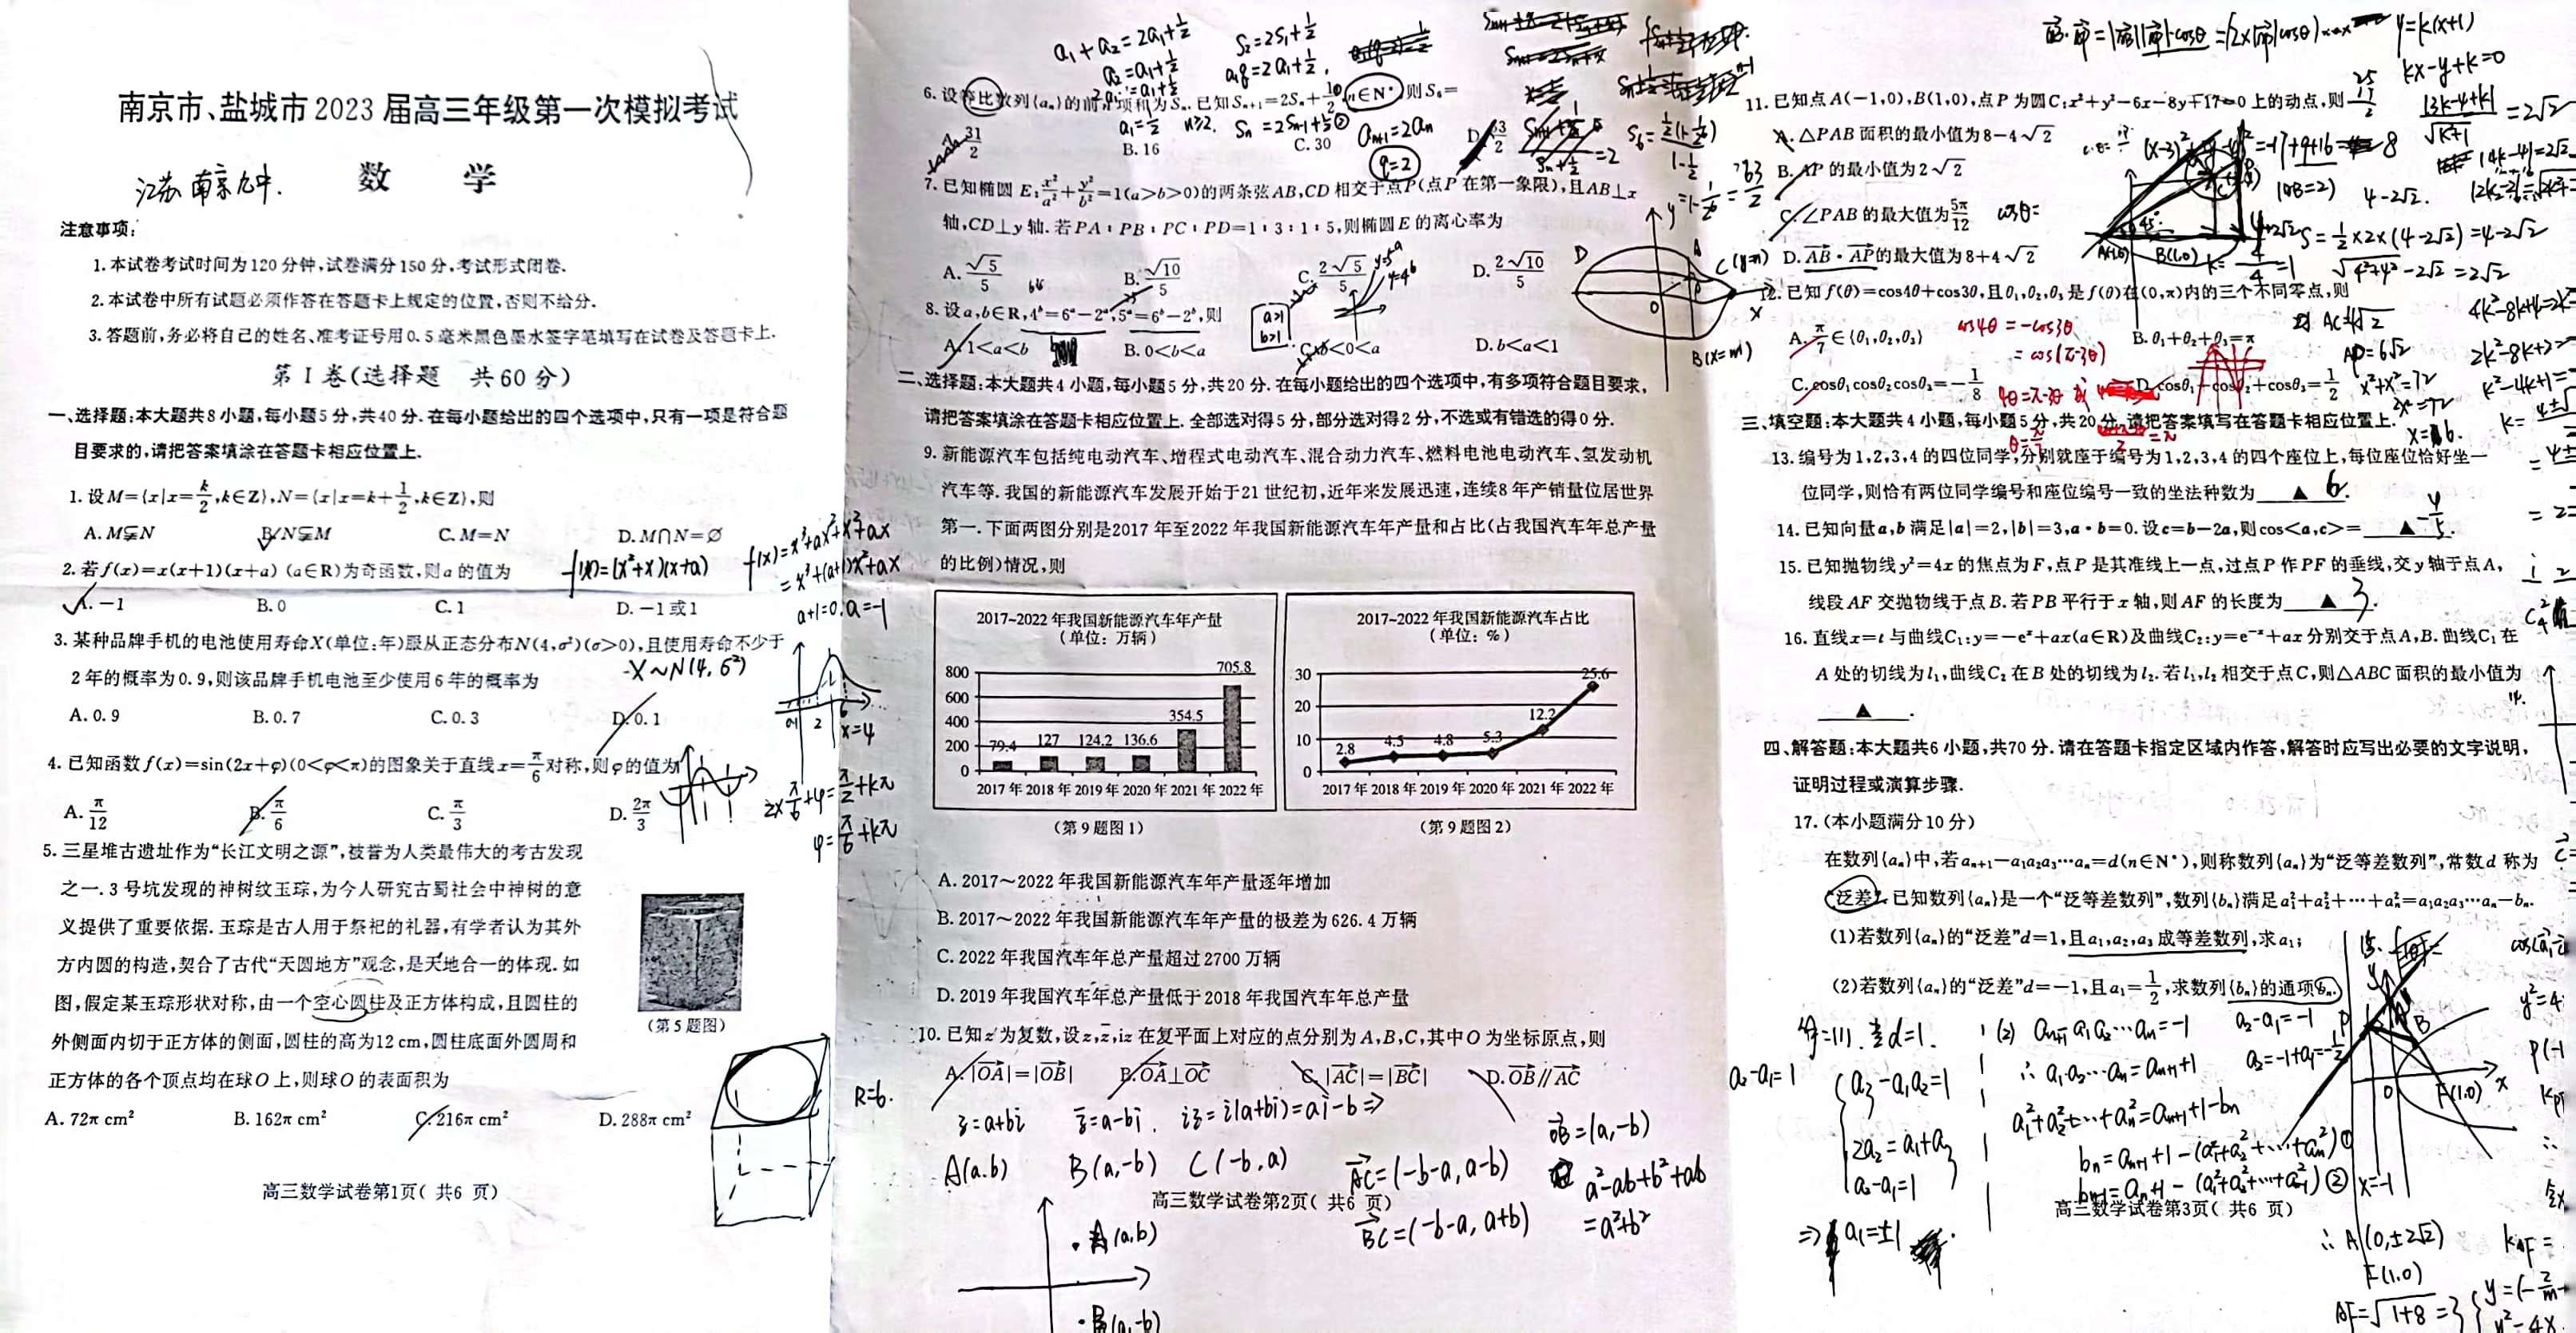 南京市、盐城市2023届高三年级第一次模拟考试
数 学
江苏南京九中.
注意事项:
1.本试卷考试时间为120分钟,试卷满分150分,考试形式闭卷.
2.本试卷中所有试题必须作答在答题卡上规定的位置,否则不给分.
3.答题前,务必将自己的姓名、准考证号用0.5毫米黑色墨水签字笔填写在试卷及答题卡上.
第Ⅰ卷(选择题 共60分)
一、选择题:本大题共8小题,每小题5分,共40分.在每小题给出的四个选项中,只有一项是符合题
目要求的,请把答案填涂在答题卡相应位置上.
1.设M={x|x=k/2,k∈Z},N={x|x=k+1/2,k∈Z},则
A. M⫋N B. N⫋M C. M=N D. M∩N=∅
2.若f(x)=x(x+1)(x+a) (a∈R)为奇函数,则a的值为
f(x)=(x²+x)(x+a)
f(x)=x³+ax²+x²+ax
=x³+(a+1)x²+ax
a+1=0.a=-1
A. -1 B. 0 C. 1 D. -1或1
3.某种品牌手机的电池使用寿命X(单位:年)服从正态分布N(4,σ²)(σ>0),且使用寿命不少于
2年的概率为0.9,则该品牌手机电池至少使用6年的概率为
X~N(4,6²)
A. 0.9 B. 0.7 C. 0.3 D. 0.1
x=4
4.已知函数f(x)=sin(2x+φ)(0<φ<π)的图象关于直线x=π/6对称,则φ的值为
A. π/12 B. π/6 C. π/3 D. 2π/3
2×π/6+φ=π/2+kπ
φ=π/6+kπ
5.三星堆古遗址作为“长江文明之源”,被誉为人类最伟大的考古发现
之一.3号坑发现的神树纹玉琮,为今人研究古蜀社会中神树的意
义提供了重要依据.玉琮是古人用于祭祀的礼器,有学者认为其外
方内圆的构造,契合了古代“天圆地方”观念,是天地合一的体现.如
图,假定某玉琮形状对称,由一个空心圆柱及正方体构成,且圆柱的
外侧面内切于正方体的侧面,圆柱的高为12 cm,圆柱底面外圆周和
正方体的各个顶点均在球O上,则球O的表面积为
(第5题图)
A. 72π cm² B. 162π cm² C. 216π cm² D. 288π cm²
R=6.
高三数学试卷第1页( 共6 页)
a₁+a₂=2a₁+1/2
a₂=a₁+1/2
S₂=2S₁+1/2
a₁q=2a₁+1/2,
6.设等比数列{aₙ}的前n项和为Sₙ.已知Sₙ₊₁=2Sₙ+1/2,n∈N*,则S₆=
a₁=1/2 n≥2. Sₙ=2Sₙ₋₁+1/2② aₙ₊₁=2aₙ
q=2
A. 31/2 B. 16 C. 30 D. 63/2
7.已知椭圆E:x²/a²+y²/b²=1(a>b>0)的两条弦AB,CD相交于点P(点P在第一象限),且AB⊥x
轴,CD⊥y轴.若PA:PB:PC:PD=1:3:1:5,则椭圆E的离心率为
A. √5/5 B. √10/5 C. 2√5/5 D. 2√10/5
8.设a,b∈R,4ᵇ=6ᵃ-2ᵃ,5ᵃ=6ᵇ-2ᵇ,则
a>1
b>1
A. 1<a<b B. 0<b<a C. b<0<a D. b<a<1
二、选择题:本大题共4小题,每小题5分,共20分.在每小题给出的四个选项中,有多项符合题目要求,
请把答案填涂在答题卡相应位置上.全部选对得5分,部分选对得2分,不选或有错选的得0分.
9.新能源汽车包括纯电动汽车、增程式电动汽车、混合动力汽车、燃料电池电动汽车、氢发动机
汽车等.我国的新能源汽车发展开始于21世纪初,近年来发展迅速,连续8年产销量位居世界
第一.下面两图分别是2017年至2022年我国新能源汽车年产量和占比(占我国汽车年总产量
的比例)情况,则
2017~2022年我国新能源汽车年产量
(单位: 万辆)
800
600
400
200
0
79.4 127 124.2 136.6 354.5 705.8
2017年 2018年 2019年 2020年 2021年 2022年
(第9题图1)
2017~2022年我国新能源汽车占比
(单位: %)
30
20
10
0
2.8 4.5 4.8 5.3 12.2 25.6
2017年 2018年 2019年 2020年 2021年 2022年
(第9题图2)
A. 2017~2022年我国新能源汽车年产量逐年增加
B. 2017~2022年我国新能源汽车年产量的极差为626.4万辆
C. 2022年我国汽车年总产量超过2700万辆
D. 2019年我国汽车年总产量低于2018年我国汽车年总产量
10.已知z为复数,设z,z̄,iz在复平面上对应的点分别为A,B,C,其中O为坐标原点,则
A. |OA|=|OB| B. OA⊥OC C. |AC|=|BC| D. OB∥AC
z=a+bi z̄=a-bi. iz=i(a+bi)=ai-b⇒
A(a.b) B(a,-b) C(-b,a)
OB=(a,-b)
AC=(-b-a, a-b)
a²-ab+b²+ab
=a²+b²
BC=(-b-a, a+b)
高三数学试卷第2页( 共6 页)
A(a,b)
B(a,-b)
y=k(x+1)
kx-y+k=0
11.已知点A(-1,0),B(1,0),点P为圆C:x²+y²-6x-8y+17=0上的动点,则
A. △PAB面积的最小值为8-4√2
B. AP的最小值为2√2
C. ∠PAB的最大值为5π/12
D. AB·AP的最大值为8+4√2
S=1/2×2×(4-2√2)=4-2√2
√4²+4²-2√2=2√2
12.已知f(θ)=cos4θ+cos3θ,且θ₁,θ₂,θ₃是f(θ)在(0,π)内的三个不同零点,则
A. π/7∈{θ₁,θ₂,θ₃} B. θ₁+θ₂+θ₃=π
cos4θ=-cos3θ
=cos(π-3θ)
C. cosθ₁cosθ₂cosθ₃=-1/8 D. cosθ₁+cosθ₂+cosθ₃=1/2
4θ=π-3θ
θ=π/7
三、填空题:本大题共4小题,每小题5分,共20分.请把答案填写在答题卡相应位置上.
13.编号为1,2,3,4的四位同学,分别就座于编号为1,2,3,4的四个座位上,每位座位恰好坐一
位同学,则恰有两位同学编号和座位编号一致的坐法种数为 ▲ 6.
14.已知向量a,b满足|a|=2,|b|=3,a·b=0.设c=b-2a,则cos<a,c>= ▲ -4/5.
15.已知抛物线y²=4x的焦点为F,点P是其准线上一点,过点P作PF的垂线,交y轴于点A,
线段AF交抛物线于点B.若PB平行于x轴,则AF的长度为 ▲ 3.
16.直线x=t与曲线C₁:y=-eˣ+ax(a∈R)及曲线C₂:y=e⁻ˣ+ax分别交于点A,B.曲线C₁在
A处的切线为l₁,曲线C₂在B处的切线为l₂.若l₁,l₂相交于点C,则△ABC面积的最小值为
▲ .
四、解答题:本大题共6小题,共70分.请在答题卡指定区域内作答,解答时应写出必要的文字说明,
证明过程或演算步骤.
17.(本小题满分10分)
在数列{aₙ}中,若aₙ₊₁-a₁a₂a₃…aₙ=d(n∈N*),则称数列{aₙ}为“泛等差数列”,常数d称为
“泛差”.已知数列{aₙ}是一个“泛等差数列”,数列{bₙ}满足a₁²+a₂²+…+aₙ²=a₁a₂a₃…aₙ-bₙ.
(1)若数列{aₙ}的“泛差”d=1,且a₁,a₂,a₃成等差数列,求a₁;
(2)若数列{aₙ}的“泛差”d=-1,且a₁=1/2,求数列{bₙ}的通项bₙ.
a₂-a₁=1
a₃-a₁a₂=1
2a₂=a₁+a₃
a₂-a₁=1
⇒ a₁=±1
(2) aₙ₊₁-a₁a₂…aₙ=-1
a₂-a₁=-1
∴ a₁·a₂…aₙ=aₙ₊₁+1
a₂=-1+a₁=-1/2
a₁²+a₂²+…+aₙ²=aₙ₊₁+1-bₙ
bₙ=aₙ₊₁+1-(a₁²+a₂²+…+aₙ²)①
bₙ₋₁=aₙ+1-(a₁²+a₂²+…+aₙ₋₁²)②
x=-1
F(1.0)
高三数学试卷第3页( 共6 页)
∴ A(0,±2√2)
F(1.0)
AF=√1+8=3